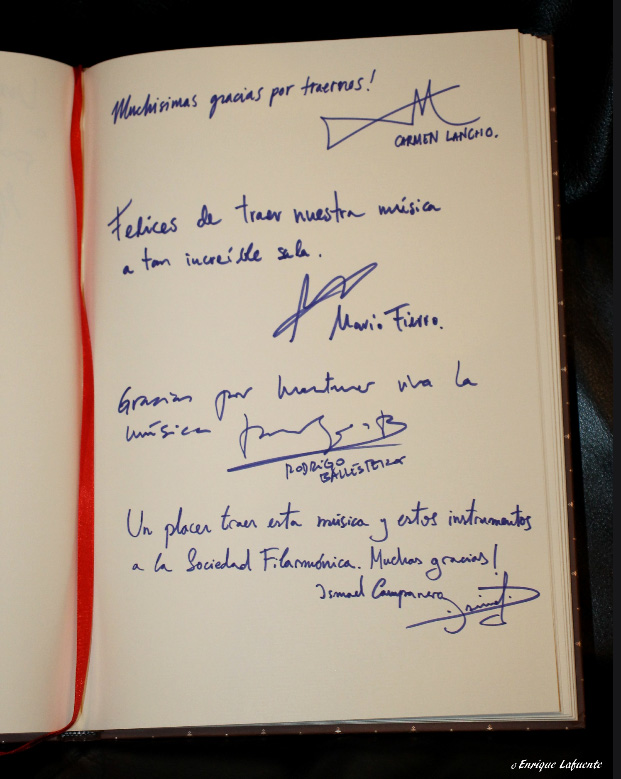 Muchisimas gracias por traernos!
CARMEN LANCHO.
Felices de traer nuestra música
a tan increíble sala.
Mario Fierro.
Gracias por mantener viva la
música
RODRIGO
BALLESTEROS
Un placer traer esta música y estos instrumentos
a la Sociedad Filarmónica. Muchas gracias!
Ismael Campanero
© Enrique Lafuente